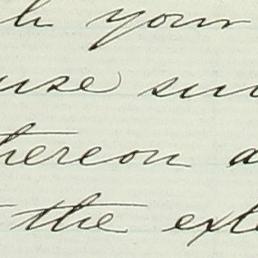 h your
use su
hereon a
the exte